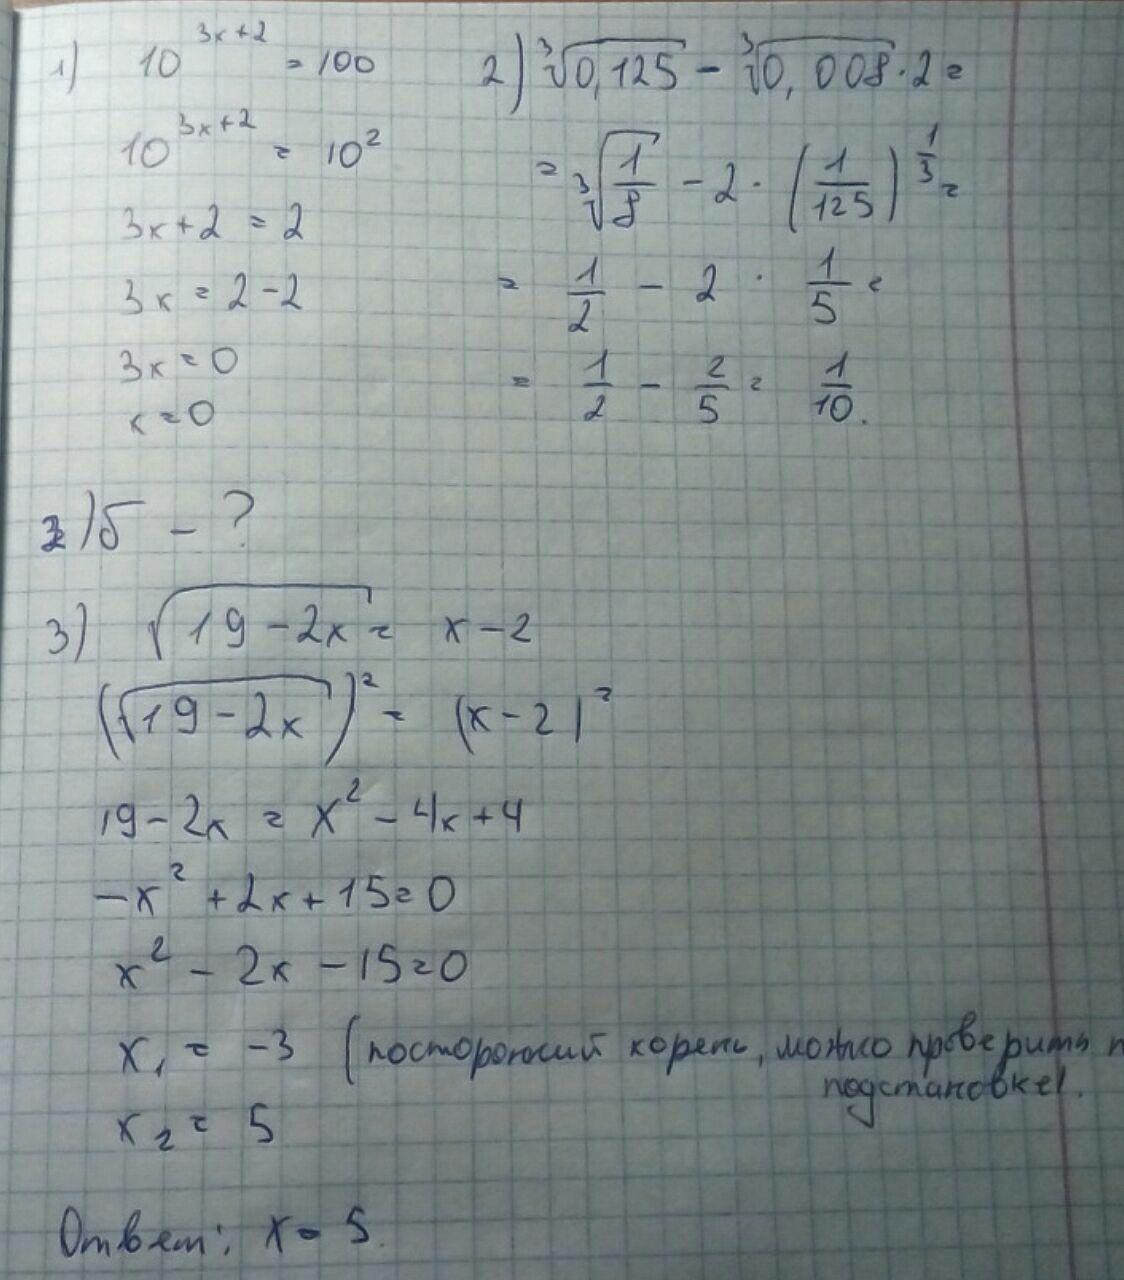 1) 10^{3x+2} = 100
10^{3x+2} = 10^2
3x+2 = 2
3x = 2-2
3x = 0
x = 0
2) ∛0,125 - ∛0,008 · 2 =
= ∛(1/8) - 2 · (1/125)^{1/3} =
= 1/2 - 2 · 1/5 =
= 1/2 - 2/5 = 1/10.
2) б - ?
3) √(19-2x) = x-2
(√(19-2x))² = (x-2)²
19-2x = x²-4x+4
-x²+2x+15=0
x²-2x-15=0
x₁ = -3 (посторонний корень, можно проверить п
подстановке).
x₂ = 5
Ответ: x = 5.